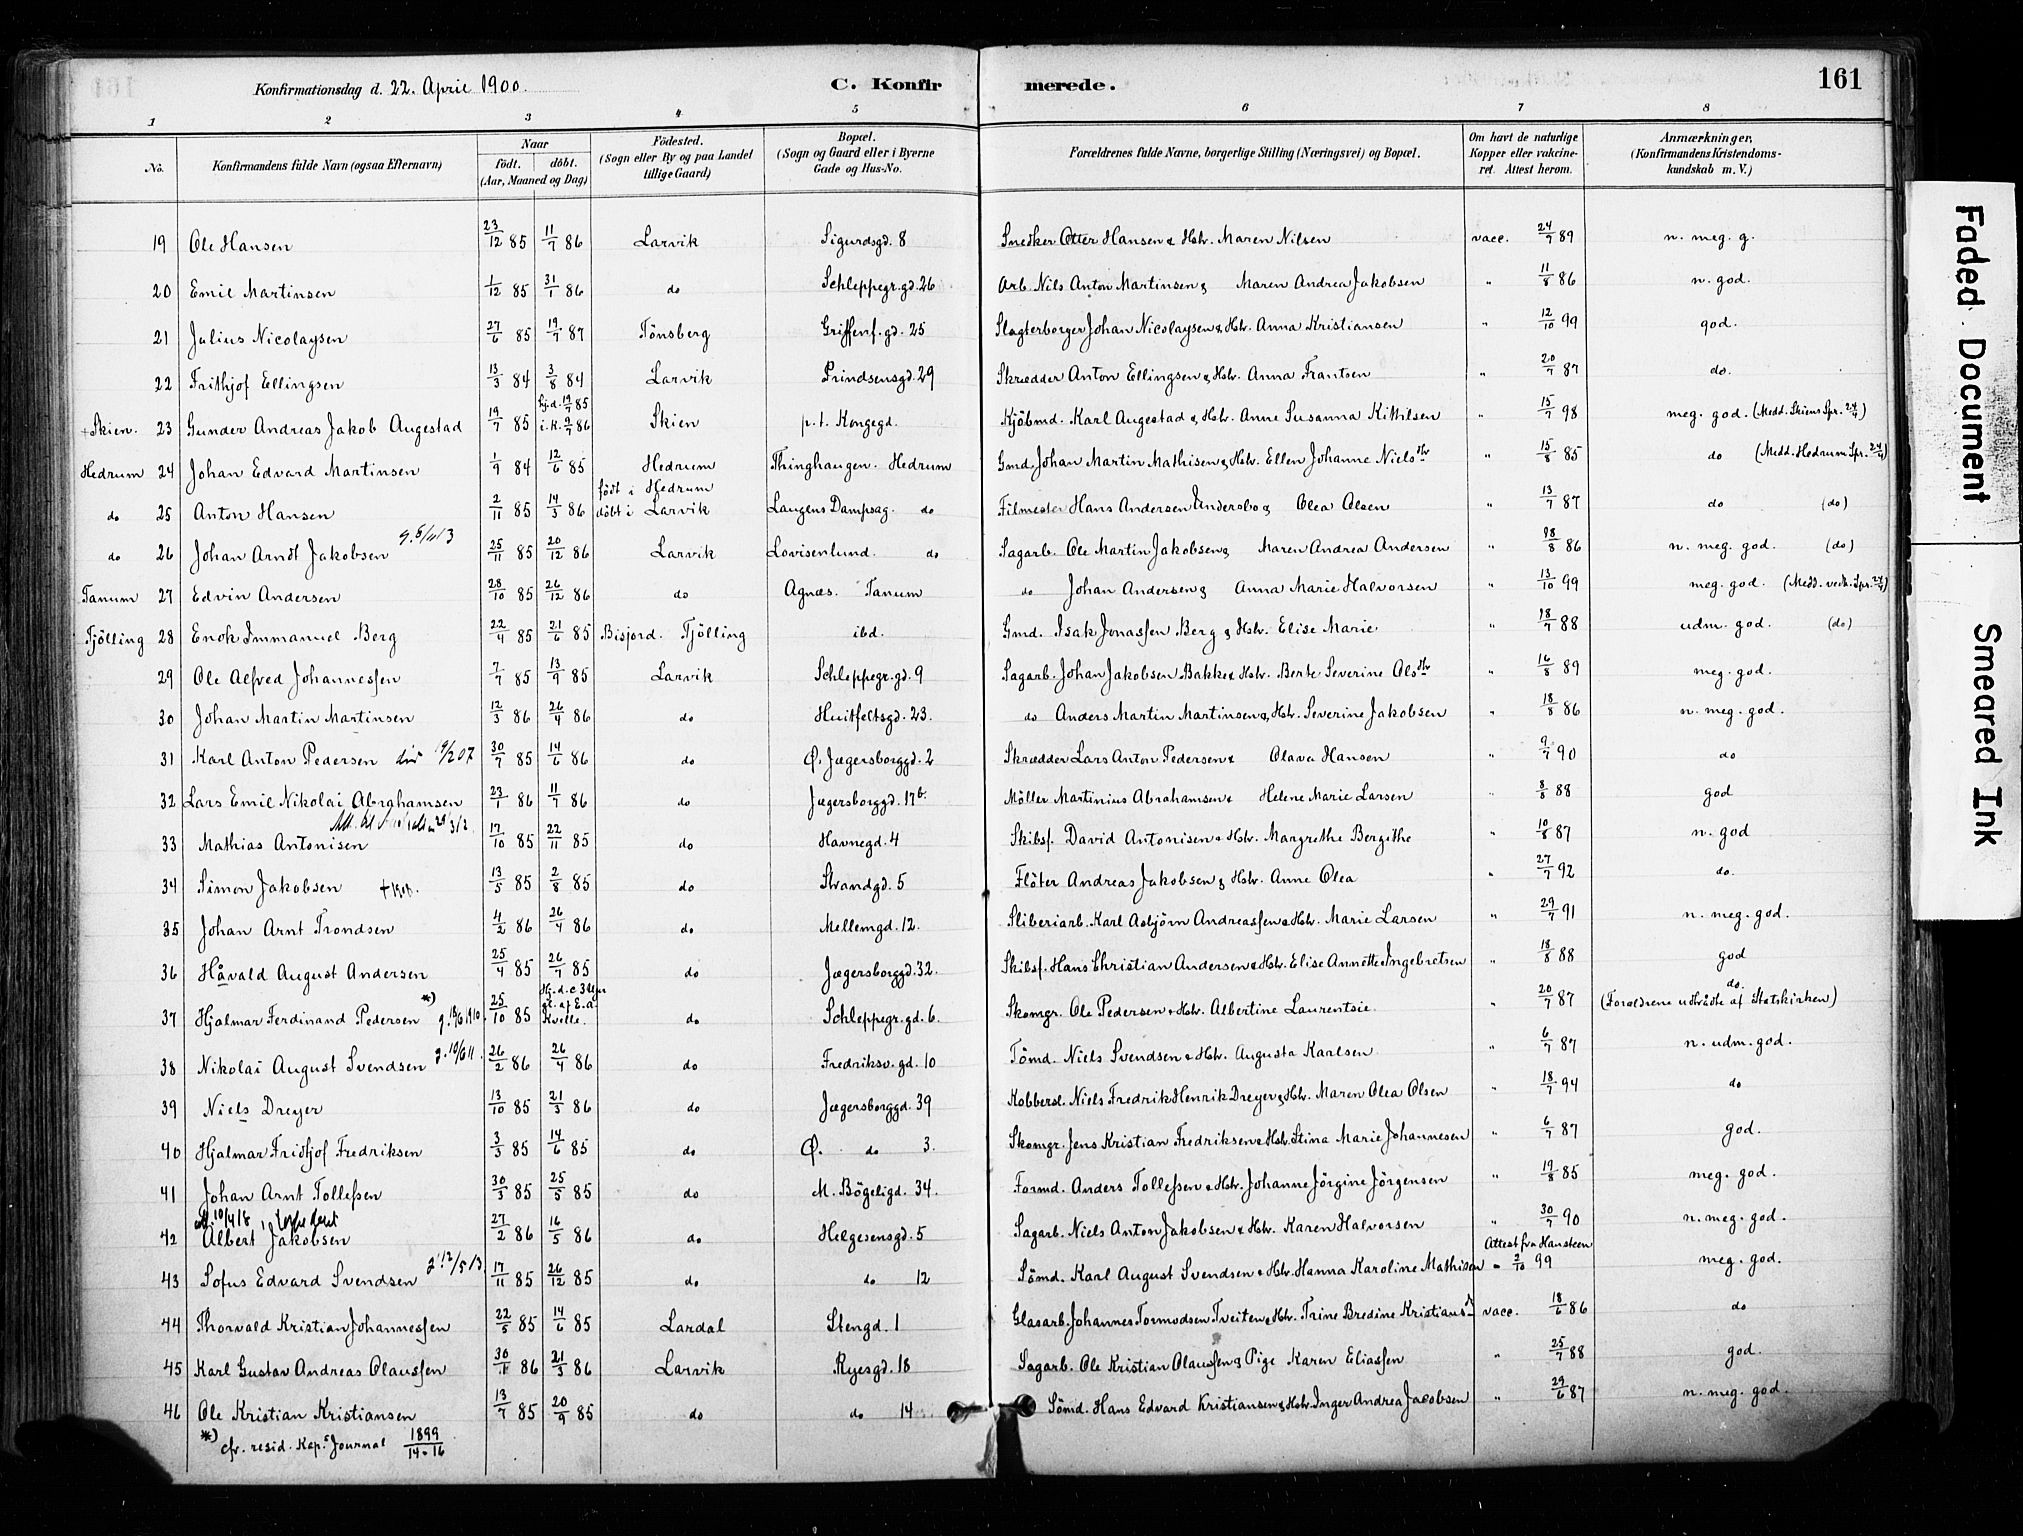 Konfirmationsdag d. 22. April 1900. C. Konfir merede. 161
1 2 3 4 5 6 7 8
No. Konfirmandens fulde Navn (ogsaa Efternavn) Naar födt. döbt. (Aar, Maaned og Dag) Födested. (Sogn eller By og paa Landet tillige Gaard) Bopæl. (Sogn og Gaard eller i Byerne Gade og Hus-No. Forældrenes fulde Navne, borgerlige Stilling (Næringsvei) og Bopæl. Om havt de naturlige Kopper eller vakcineret. Attest herom. Anmærkninger, (Konfirmandens Kristendomskundskab m. V.)
19 Ole Hansen 23/12 85 11/7 86 Larvik Sigurdsgd. 8 Snedker Otter Hansen & Hstr. Maren Nilsen vacc. 24/7 89 n. meg. g.
20 Emil Martinsen 1/12 85 31/1 86 do Schleppegr.gd. 26 Arb. Nils Anton Martinsen & Maren Andrea Jakobsen " 11/8 86 n. god.
21 Julius Nicolaysen 27/6 85 19/7 87 Tönsberg Griffenf.gd. 25 Slagterborger Johan Nicolaysen & Hstr. Anna Kristiansen " 12/10 99 god.
22 Frithjof Ellingsen 13/3 84 3/8 84 Larvik Prindsensgd. 29 Skrædder Anton Ellingsen & Hstr. Anna Frantsen " 20/7 87 do.
+ Skien. 23 Gunder Andreas Jakob Augestad 19/7 85 hj.d. 19/7 85 i.K. 9/7 86 Skien p.t. Kongegd. Kjöbmd. Karl Augestad & Hstr. Anne Susanna Kittilsen " 15/7 98 meg. god. (Medd. Skiens Spr. 24/4)
Hedrum 24 Johan Edvard Martinsen 1/9 84 12/6 85 Hedrum Thinghaugen. Hedrum Gmd. Johan Martin Mathisen & Hstr. Ellen Johanne Nielsdtr " 15/8 85 do (Medd. Hedrum Spr. 24/4)
do 25 Anton Hansen 2/11 85 14/3 86 födt i Hedrum döbt i Larvik Laugens Dampsag. do Filmester Hans Andersen Undersbo & Olea Olsen " 13/7 87 do (do)
do 26 Johan Arndt Jakobsen 25/11 85 20/12 86 Larvik Lovisenlund. do Sagarb. Ole Martin Jakobsen & Maren Andrea Andersen " 28/8 86 n. meg. god. (do)
Tanum 27 Edvin Andersen 28/10 85 26/12 86 do Agnæs. Tanum do Johan Andersen & Anna Marie Halvorsen " 13/10 99 meg. god. (Medd. vedk. Spr. 24/4)
Tjölling 28 Enok Immanuel Berg 22/4 85 21/6 85 Bisjord. Tjölling ibd. Gmd. Isak Jonassen Berg & Hstr. Elise Marie " 18/7 88 udm. god. (do)
29 Ole Alfred Johannessen 7/7 85 13/9 85 Larvik Schleppegr.gd. 9 Sagarb. Johan Jakobsen Bakke & Hstr. Berte Severine Olsdtr " 16/8 89 meg. god.
30 Johan Martin Martinsen 12/3 86 26/4 86 do Huitfeltsgd. 23. do Anders Martin Martinsen & Hstr. Severine Jakobsen " 18/8 86 n. meg. god.
31 Karl Anton Pedersen 30/7 85 14/6 86 do Ø. Jægersborggd. 2 Skrædder Lars Anton Pedersen & Olava Hansen " 9/7 90 do
32 Lars Emil Nikolai Abrahamsen 23/1 86 11/7 86 do Jægersborggd. 17b. Möller Martinius Abrahamsen & Helene Marie Larsen " 8/8 88 god
33 Mathias Antonisen 17/10 85 22/11 85 do Havnegd. 4 Skibsf. David Antonisen & Hstr. Margrethe Bergithe " 10/8 87 n. god
34 Simon Jakobsen 13/5 85 2/8 85 do Strandgd. 5 Flöter Andreas Jakobsen & Hstr. Anne Olea " 27/7 92 do.
35 Johan Arnt Trondsen 4/2 86 26/4 86 do Mellemgd. 12. Sliberiarb. Karl Asbjörn Andreassen & Hstr. Marie Larsen " 29/7 91 n. meg. god.
36 Håvald August Andersen 25/4 85 26/7 85 do Jægersborggd. 32. Skibsf. Hans Christian Andersen & Hstr. Elise Annette Ingebretsen " 18/8 88 god
37 Hjalmar Ferdinand Pedersen *) 25/10 85 Hj.d. c 3 Uger gl. af E.A. Kvelle. do Schleppegr.gd. 6. Skomgr. Ole Pedersen & Hstr. Albertine Laurentsie " 20/7 87 do. (Forældrene udtrådte af Statskirken)
38 Nikolai August Svendsen 26/2 86 26/4 86 do Fredriksv.gd. 10 Tömd. Niels Svendsen & Hstr. Augusta Karlsen " 6/7 87 n. udm. god.
39 Niels Dreyer 13/10 85 21/3 86 do Jægersborggd. 39 Kobbersl. Niels Fredrik Henrik Dreyer & Hstr. Maren Olea Olsen " 18/7 94 do
40 Hjalmar Fridtjof Fredriksen 3/3 85 14/6 85 do Ø. do 3. Skomgr. Jens Kristian Fredriksen & Hstr. Stina Marie Johannesen " 6/7 87 god.
41 Johan Arnt Tollefsen 30/3 85 25/5 85 do M. Bögeligd. 34. Formd. Anders Tollefsen & Hstr. Johanne Jörgine Jörgensen " 19/8 85 meg. god.
42 Albert Jakobsen 27/2 86 16/5 86 do Helgesensgd. 5 Sagarb. Niels Anton Jakobsen & Hstr. Karen Halvorsen " 30/7 90 n. meg. god.
43 Sofus Edvard Svendsen 17/11 85 26/12 85 do do 12 Sömd. Karl August Svendsen & Hstr. Hanna Karoline Mathisen Attest fra Hansteen " 2/10 99 meg. god.
44 Thorvald Kristian Johannessen 22/5 85 14/6 85 Lardal Stengd. 1 Glasarb. Johannes Tormodsen Tveiten & Hstr. Trine Bredine Kristiansd. vacc. 18/6 86 do
45 Karl Gustav Andreas Olaussen 30/1 86 21/3 86 Larvik Ryesgd. 18 Sagarb. Ole Kristian Olaussen & Pige Karen Eliassen " 25/7 88 god.
46 Ole Kristian Kristiansen 13/7 85 20/9 85 do do 14 Sömd. Hans Edvard Kristiansen & Hstr. Inger Andrea Jacobsen " 29/6 87 n. meg. god.
*) cfr. resid. Kap.s Journal 1899/14-16
Faded Document
Smeared Ink